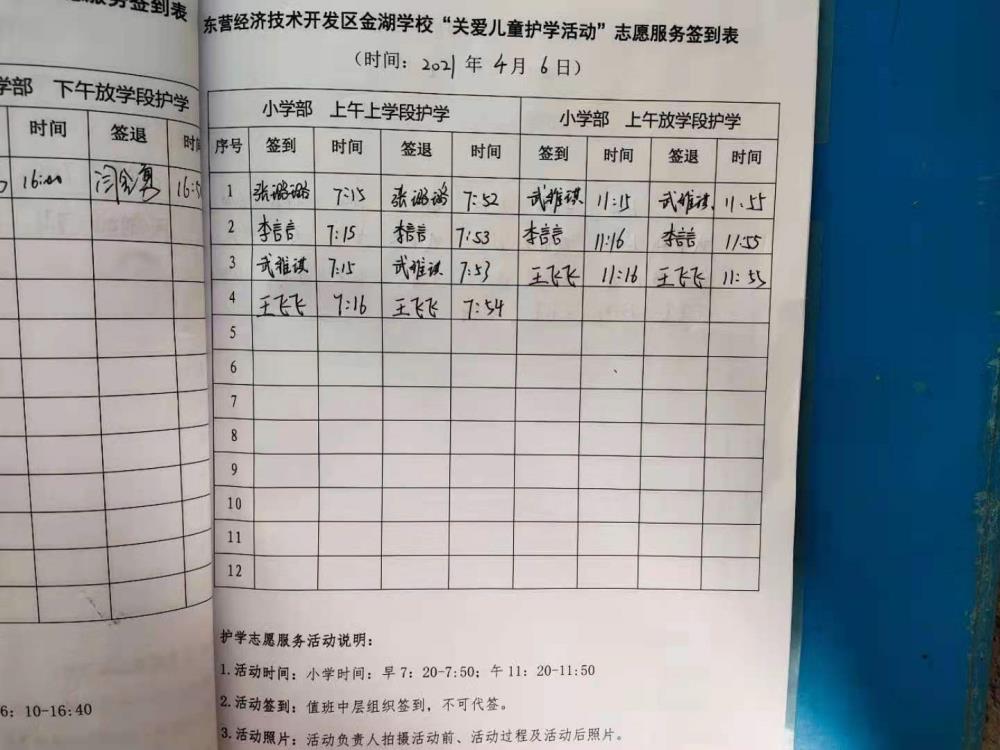 务签到表
学部 下午放学段护学
时间 签退 时间
16:00 闫金勇
6: 10-16:40
东营经济技术开发区金湖学校“关爱儿童护学活动”志愿服务签到表
(时间: 2021 年 4 月 6 日)
小学部 上午上学段护学 小学部 上午放学段护学
序号 签到 时间 签退 时间 签到 时间 签退 时间
1 张璐璐 7:15 张璐璐 7:52 武雅琪 11:15 武雅琪 11:55
2 李言言 7:15 李言言 7:53 李言言 11:16 李言言 11:55
3 武雅琪 7:15 武雅琪 7:53 王飞飞 11:16 王飞飞 11:55
4 王飞飞 7:16 王飞飞 7:54
5
6
7
8
9
10
11
12
护学志愿服务活动说明:
1.活动时间: 小学时间: 早 7: 20-7:50; 午 11: 20-11:50
2.活动签到: 值班中层组织签到,不可代签。
3.活动照片: 活动负责人拍摄活动前、活动过程及活动后照片。